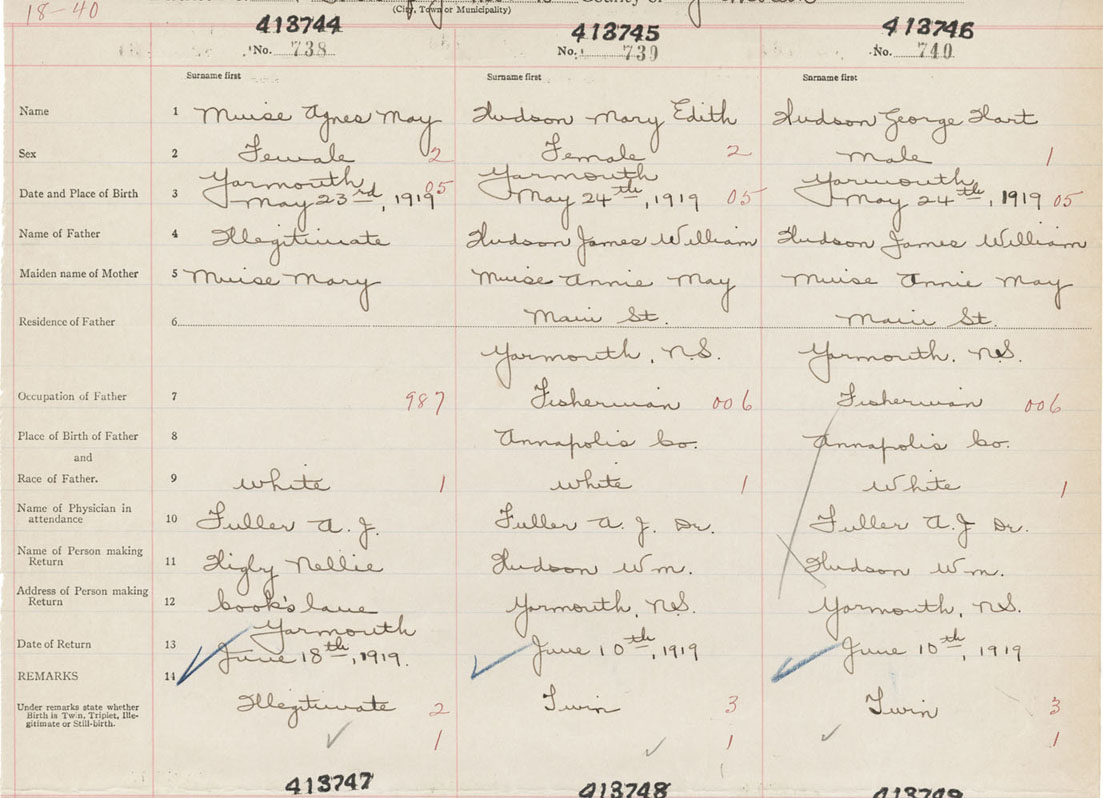 18-40
(City, Town or Municipality)
413744 413745 413746
No. 738 No. 739 No. 740
Surname first Surname first Surname first
Name 1 Muise Agnes May Hudson Mary Edith Hudson George Hart
Sex 2 Female 2 Female 2 Male 1
Yarmouth Yarmouth Yarmouth
Date and Place of Birth 3 May 23rd, 1919 05 May 24th, 1919 05 May 24th, 1919 05
Name of Father 4 Illegitimate Hudson James William Hudson James William
Maiden name of Mother 5 Muise Mary Muise Annie May Muise Annie May
Residence of Father 6 Main St. Main St.
Yarmouth, N.S. Yarmouth, N.S.
Occupation of Father 7 987 Fisherman 006 Fisherman 006
Place of Birth of Father 8 Annapolis Co. Annapolis Co.
and
Race of Father. 9 White 1 White 1 White 1
Name of Physician in
attendance 10 Fuller A. J. Fuller A. J. Dr. Fuller A. J Dr.
Name of Person making
Return 11 Higby Nellie Hudson Wm. Hudson Wm.
Address of Person making
Return 12 Cook's lane Yarmouth, N.S. Yarmouth, N.S.
Yarmouth
Date of Return 13 June 18th, 1919. June 10th, 1919 June 10th, 1919
REMARKS 14
Under remarks state whether
Birth is Twin, Triplet, Ille-
gitimate or Still-birth.
Illegitimate 2 Twin 3 Twin 3
1 1 1
413747 413748 413749